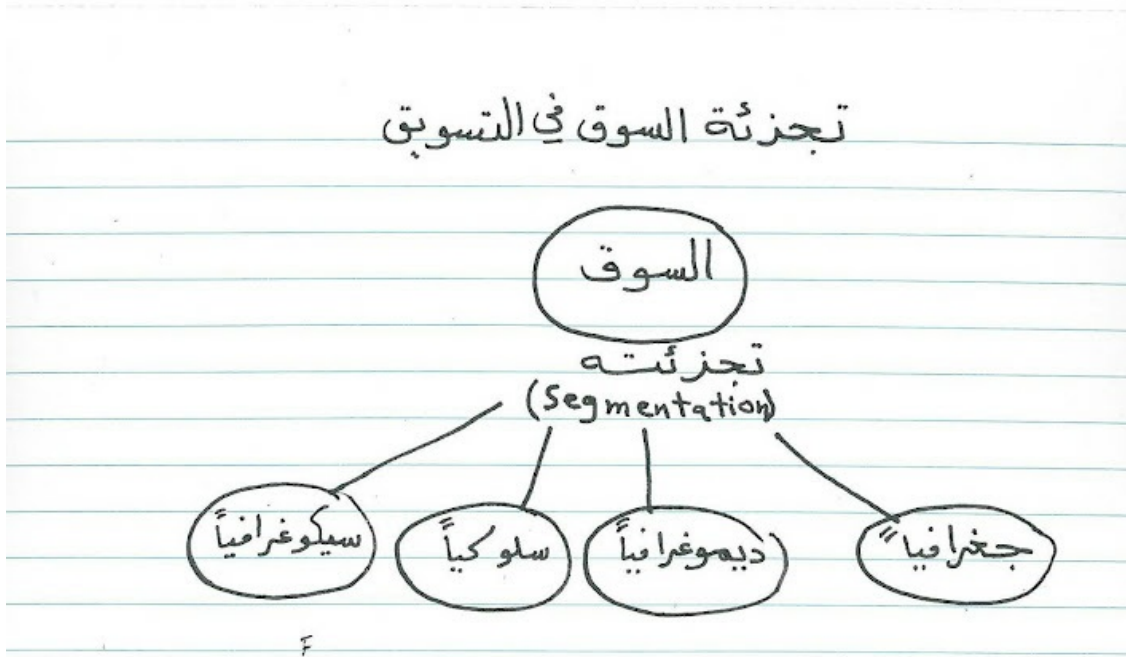 تجزئة السوق في التسويق
السوق
تجزئته
(Segmentation)
جغرافياً ديموغرافياً سلوكياً سيكوغرافياً
F